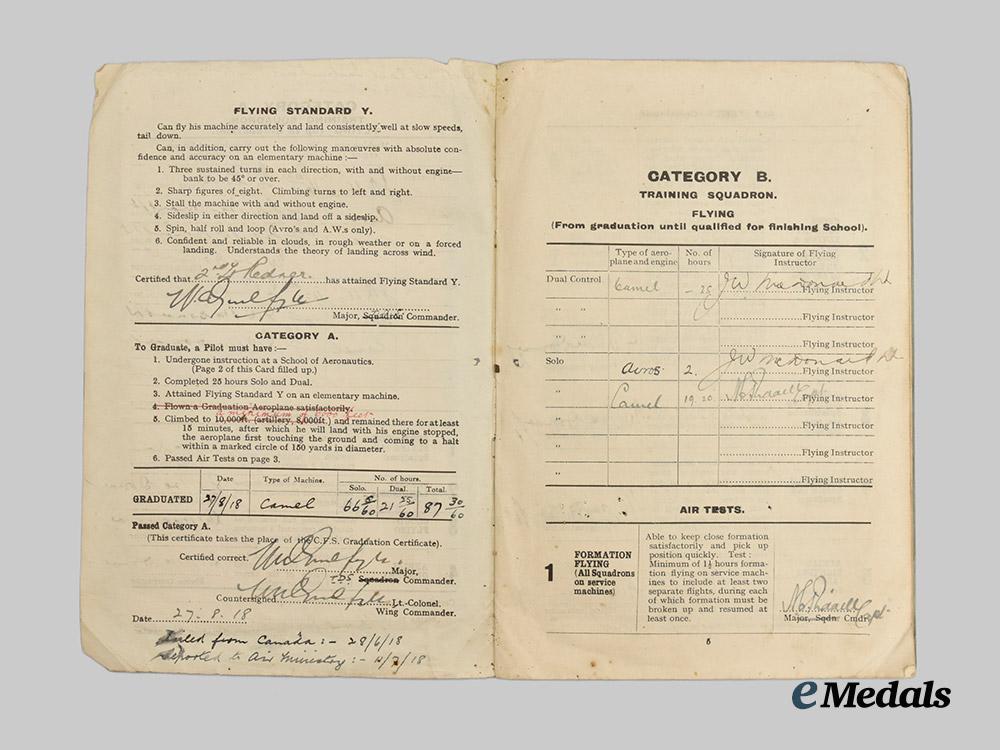 FLYING STANDARD Y.
Can fly his machine accurately and land consistently well at slow speeds,
tail down.
Can, in addition, carry out the following manœuvres with absolute con-
fidence and accuracy on an elementary machine :—
1. Three sustained turns in each direction, with and without engine—
bank to be 45° or over.
2. Sharp figures of eight. Climbing turns to left and right.
3. Stall the machine with and without engine.
4. Sideslip in either direction and land off a sideslip.
5. Spin, half roll and loop (Avro's and A.W.s only).
6. Confident and reliable in clouds, in rough weather or on a forced
landing. Understands the theory of landing across wind.
Certified that 2nd Lt has attained Flying Standard Y.
Major, Squadron Commander.
CATEGORY A.
To Graduate, a Pilot must have :—
1. Undergone instruction at a School of Aeronautics.
(Page 2 of this Card filled up.)
2. Completed 25 hours Solo and Dual.
3. Attained Flying Standard Y on an elementary machine.
4. Flown a Graduation Aeroplane satisfactorily.
a minimum of 8000 feet
5. Climbed to 10,000ft. (artillery, 8,000ft.) and remained there for at least
15 minutes, after which he will land with his engine stopped,
the aeroplane first touching the ground and coming to a halt
within a marked circle of 150 yards in diameter.
6. Passed Air Tests on page 3.
Date Type of Machine. No. of hours.
Solo. Dual. Total.
GRADUATED 27/8/18 Camel 66 5/60 21 25/60 87 30/60
Passed Category A.
(This certificate takes the place of the C.F.S. Graduation Certificate).
Certified correct. Major,
TDS Squadron Commander.
Countersigned Lt.-Colonel.
Wing Commander.
Date 27. 8. 18
Sailed from Canada :- 28/6/18
Reported to Air Ministry :- /7/18
CATEGORY B.
TRAINING SQUADRON.
FLYING
(From graduation until qualified for finishing School).
Type of aero-
plane and engine
No. of
hours
Signature of Flying
Instructor
Dual Control Camel - 25 Flying Instructor
" " Flying Instructor
" " Flying Instructor
Solo Avros 2. JW McDonald Lt Flying Instructor
" " Camel 19. 20 Flying Instructor
" " Flying Instructor
" " Flying Instructor
" " Flying Instructor
AIR TESTS.
1
FORMATION
FLYING
(All Squadrons
on service
machines)
Able to keep close formation
satisfactorily and pick up
position quickly. Test :
Minimum of 1½ hours forma-
tion flying on service mach-
ines to include at least two
separate flights, during each
of which formation must be
broken up and resumed at
least once.
Capt.
Major, Sqdn. Cmdr.
5
eMedals